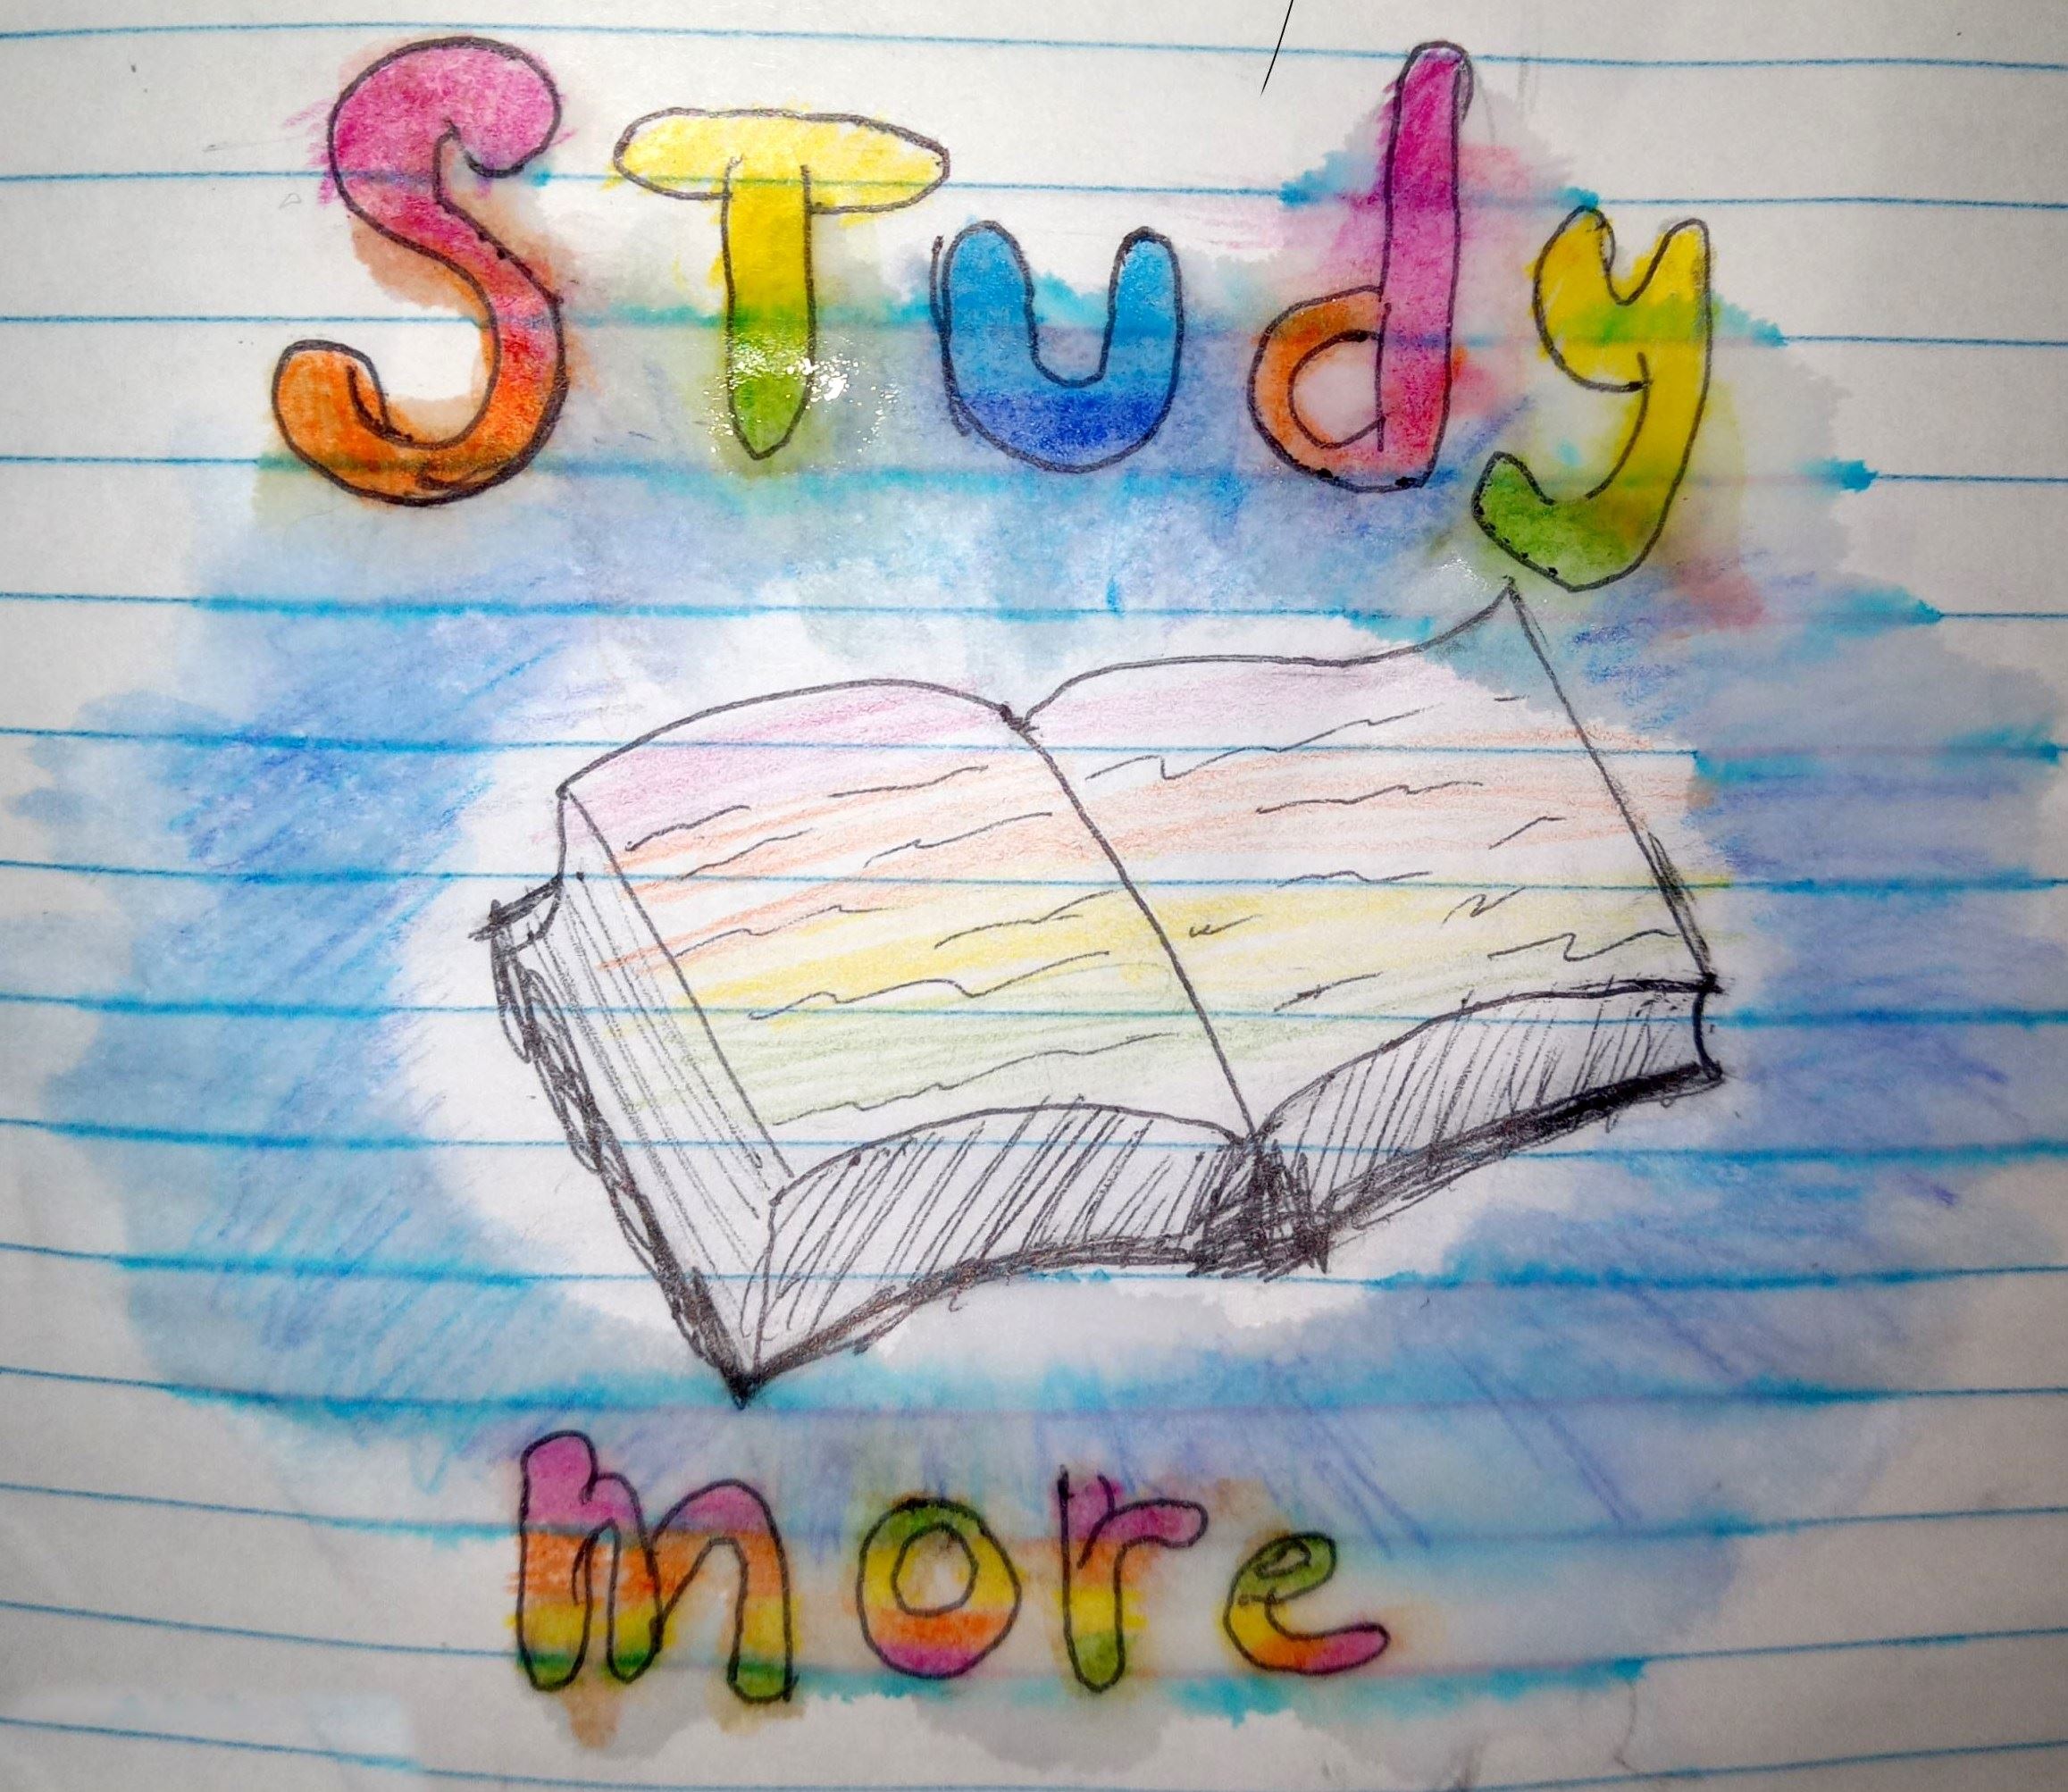 STudy
more